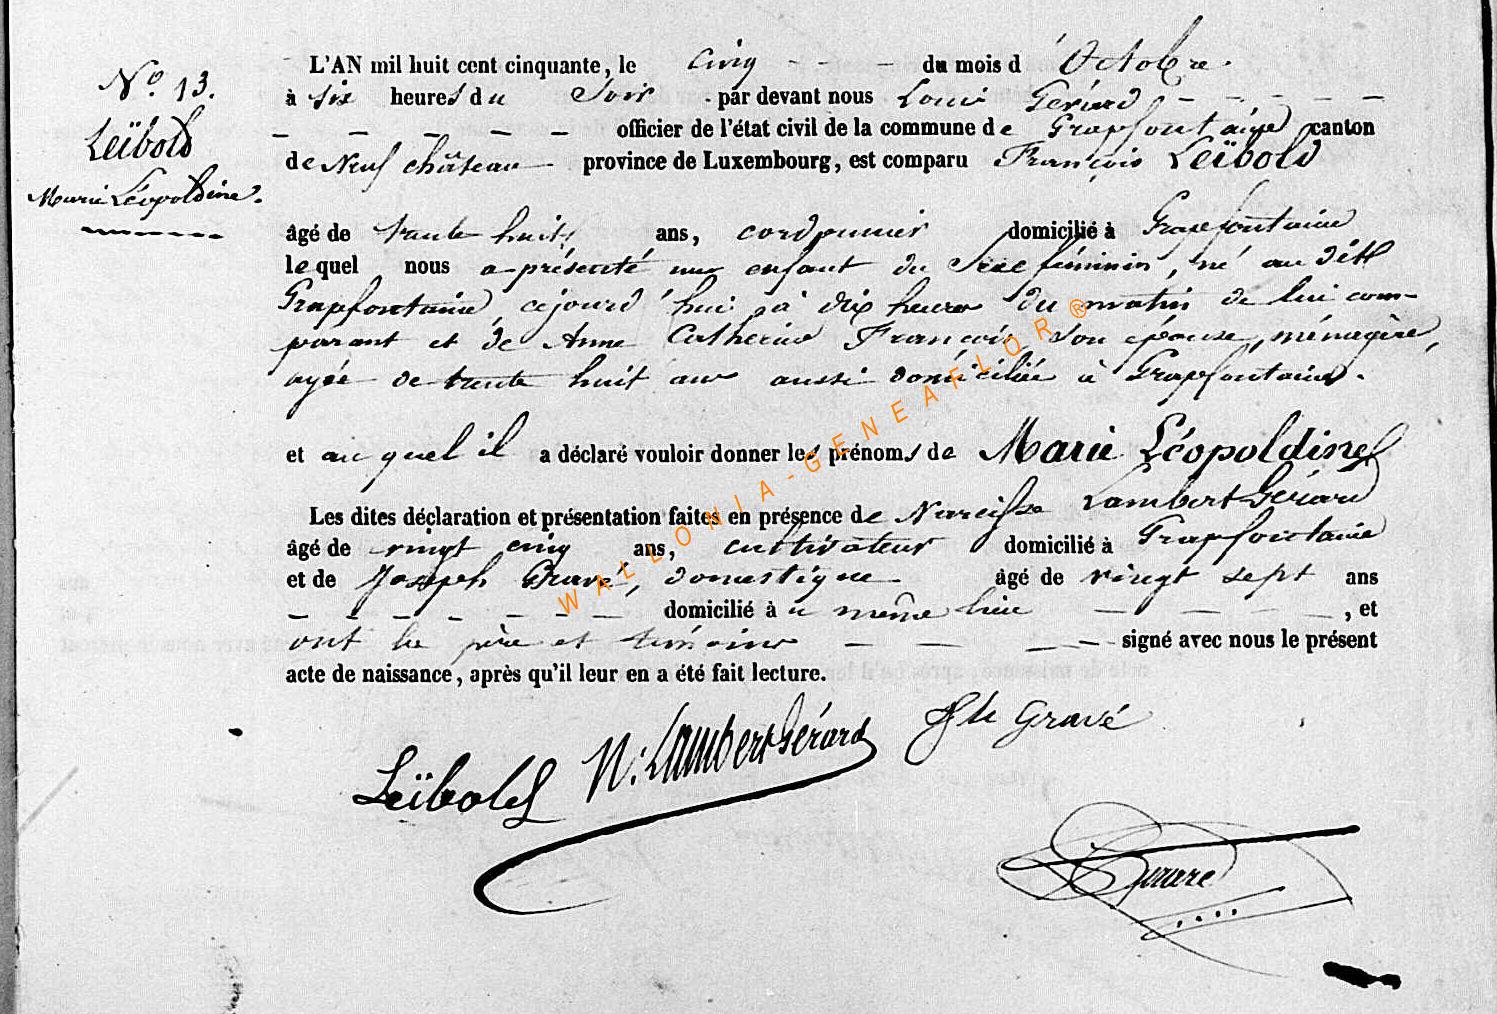 N.º 13.
Leïbold
Marie Léopoldine.
L'AN mil huit cent cinquante, le cinq - - - du mois d'Octobre.
à six heures du soir - par devant nous Louis Gérard - - - - -
- - - - - officier de l'état civil de la commune de Grapfontaine canton
de Neufchâteau - province de Luxembourg, est comparu François Leïbold
âgé de trente huit ans, cordonnier domicilié à Grapfontaine
lequel nous a présenté un enfant du Sexe féminin, né au détt
Grapfontaine, cejourd'hui, à dix heures du matin de lui com-
parant et de Anne Catherine François son épouse, ménagère,
agée de trente huit ans aussi domiciliée à Grapfontaine.
et au quel il a déclaré vouloir donner les prénoms de Marie Léopoldine
Les dites déclaration et présentation faites en présence de Narcisse Lambert Gérard
âgé de vingt cinq ans, cultivateur domicilié à Grapfontaine
et de Joseph Gravé, domestique - âgé de vingt sept ans
- - - - - - - domicilié à u même lieu - - - -, et
ont le père et témoins - - - - signé avec nous le présent
acte de naissance, après qu'il leur en a été fait lecture.
Leïbold N. Lambert Gérard Jh Gravé
Gérard
WALLONIA-GENEAFLOR ®